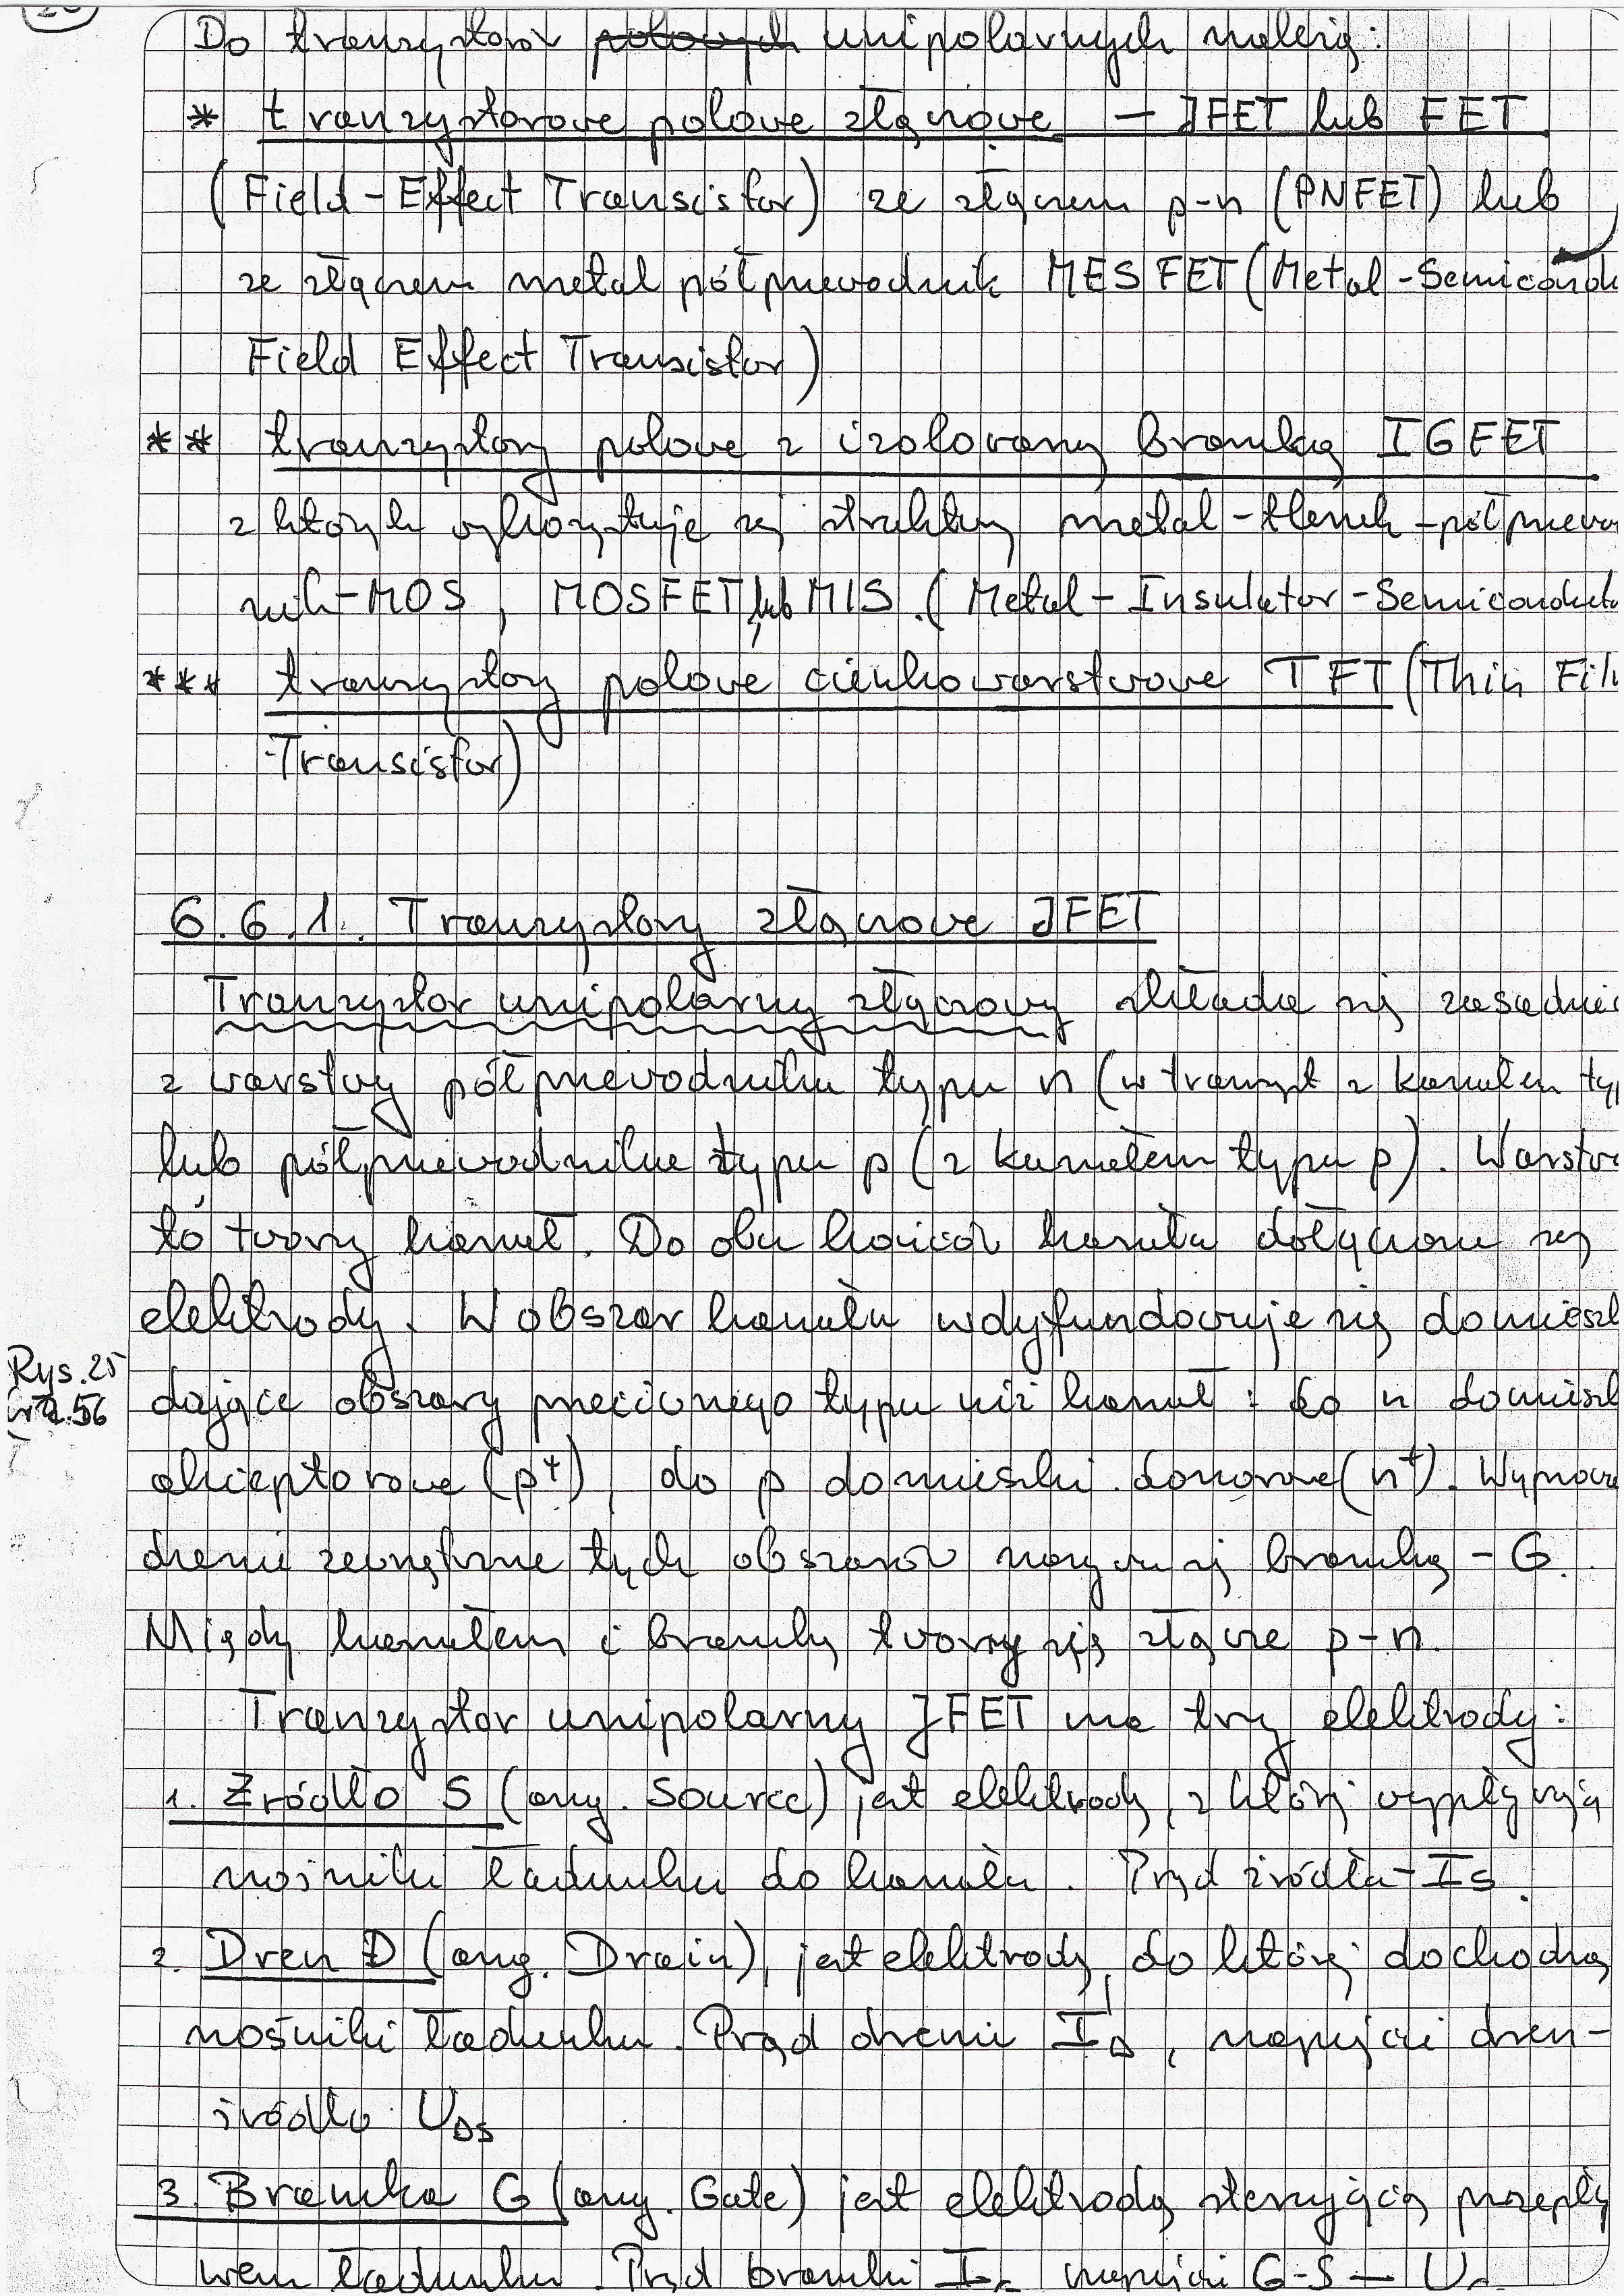 26
Do tranzystorów polowych unipolarnych należą:
* tranzystorowe polowe złączowe — JFET lub FET
(Field-Effect Transistor) ze złączem p-n (PNFET) lub
ze złączem metal półprzewodnik MESFET (Metal-Semicondu
Field Effect Transistor)
** tranzystory polowe z izolowaną bramką IGFET
z których wykorzystuje się struktury metal-tlenek-półprzewo
nik-MOS, MOSFET lub MIS. (Metal-Insulator-Semiconducto
*** tranzystory polowe cienkowarstwowe TFT (Thin Fil
Transistor)
6.6.1. Tranzystory złączowe JFET
Tranzystor unipolarny złączowy składa się zasadnic
z warstwy półprzewodnika typu n (w tranzyst z kanałem typ
lub półprzewodnika typu p (z kanałem typu p). Warstw
to tworzy kanał. Do obu końców kanału dołączone są
elektrody. W obszar kanału wdyfundowuje się domiesz
Rys. 25
56
dające obszary przeciwnego typu niż kanał: do n domiesz
akceptorowe (p⁺), do p domieszki donorowe (n⁺). Wyprowa
dzenie zewnętrzne tych obszarów nazywa się bramką - G.
Między kanałem i bramką tworzy się złącze p-n.
Tranzystor unipolarny JFET ma trzy elektrody:
1. Źródło S (ang. Source) jest elektrodą, z której wypływają
nośniki ładunku do kanału. Prąd źródła - Is.
2. Dren D (ang. Drain), jest elektrodą do której dochodzą
nośniki ładunku. Prąd drenu I_D, napięcie dren-
źródło U_DS
3. Bramka G (ang. Gate) jest elektrodą sterującą przepły
wem ładunku. Prąd bramki I_G napięcie G-S — U